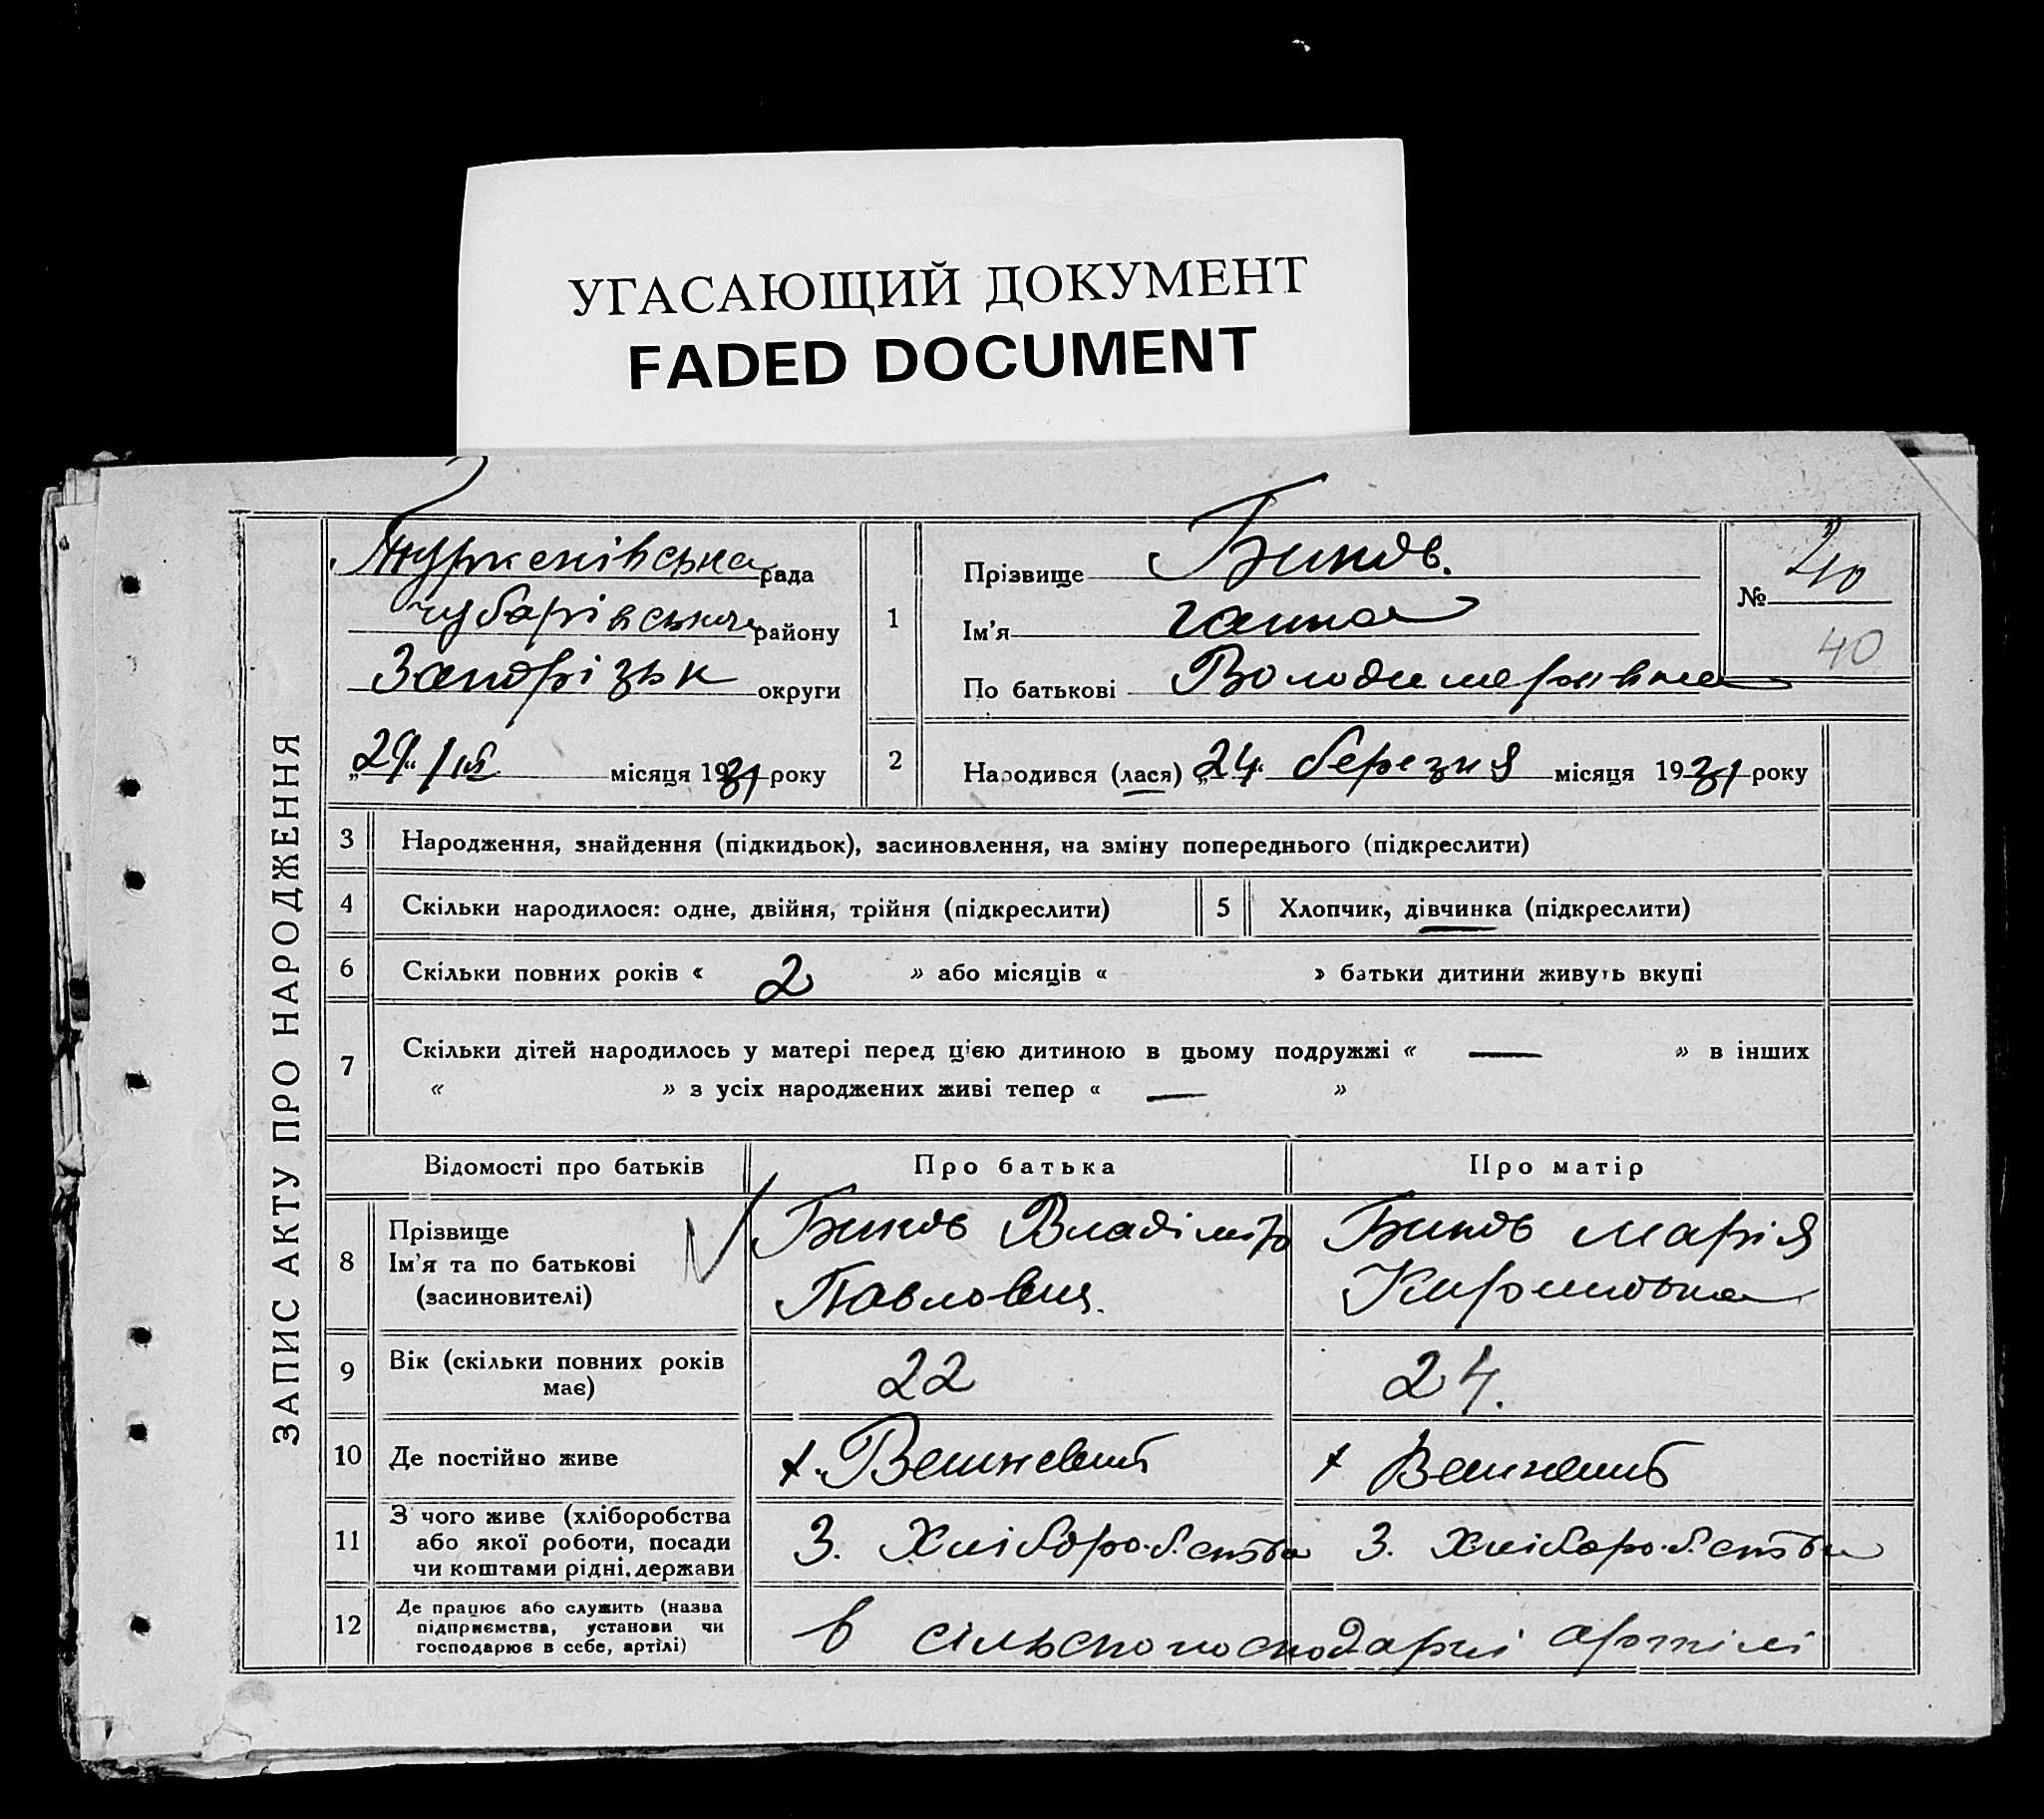 УГАСАЮЩИЙ ДОКУМЕНТ
FADED DOCUMENT
ЗАПИС АКТУ ПРО НАРОДЖЕННЯ
рада
Чубарівського району
Запорізьк округи
„29“ /III місяця 1931 року
1
Прізвище Биков.
Ім'я Ганна
По батькові Володимерівна
№ 40
40
2
Народився (лася) „24“ березня місяця 1931 року
3 Народження, знайдення (підкидьок), засиновлення, на зміну попереднього (підкреслити)
4 Скільки народилося: одне, двійня, трійня (підкреслити) 5 Хлопчик, дівчинка (підкреслити)
6 Скільки повних років « 2 » або місяців « » батьки дитини живуть вкупі
7 Скільки дітей народилось у матері перед цією дитиною в цьому подружжі « — » в інших
« » з усіх народжених живі тепер « — »
Відомості про батьків Про батька Про матір
8 Прізвище
Ім'я та по батькові
(засиновителі)
Биков Владімір
Павлович.
Биков Марія
9 Вік (скільки повних років
має)
22 24.
10 Де постійно живе
х. х
11 З чого живе (хліборобства
або якої роботи, посади
чи коштами рідні, держави
З. Хліборо.б.ства З. Хліборо.б.ства
12 Де працює або служить (назва
підприємства, установи чи
господарює в себе, артілі)
в сільськогосподарчі артілі